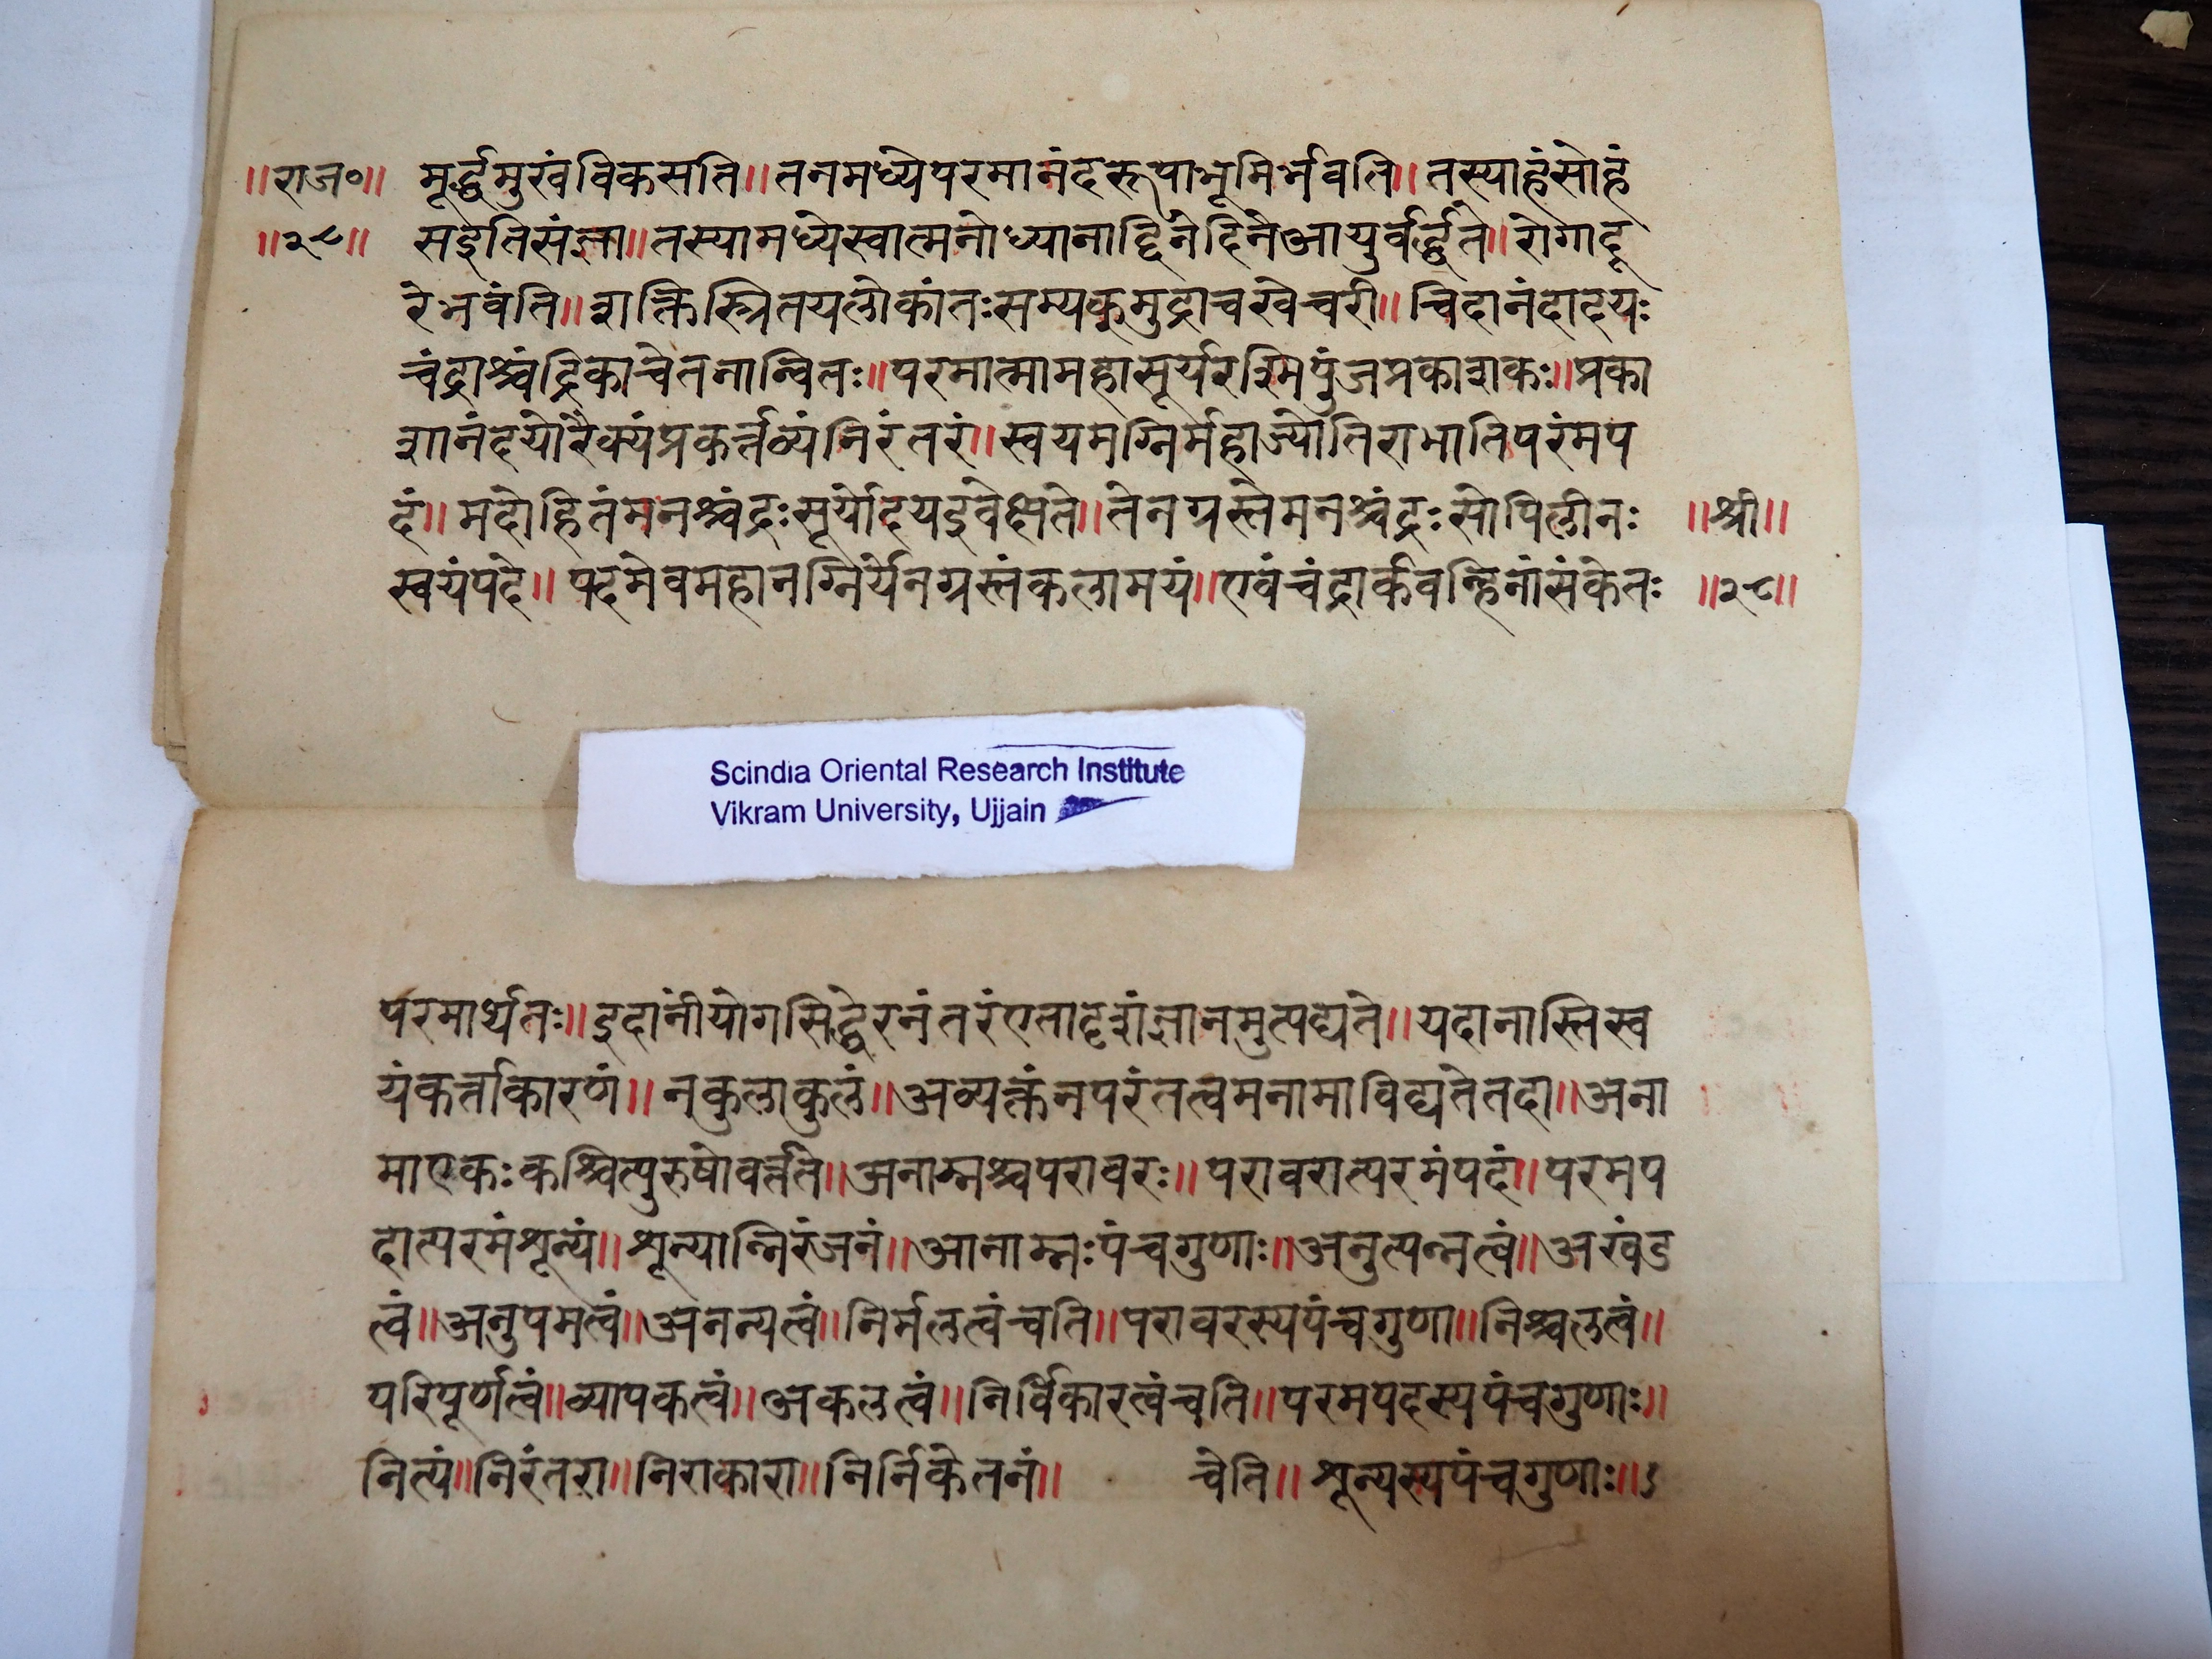 ॥राज०॥ मूर्द्धमुखंविकसति॥तनमध्येपरमानंदरूपाभूमिर्भवति॥तस्याहंसोहं
॥२८॥ सइतिसंज्ञा॥तस्यामध्येस्वात्मनोध्यानाद्दिनेदिनेआयुर्वर्द्धते॥रोगादू
रेभवंति॥शक्तिस्त्रितयलोकांतःसम्यक्मुद्राचखेचरी॥चिदानंदादयः
चंद्राश्चंद्रिकाचेतनान्वितः॥परमात्मामहासूर्यरश्मिपुंजप्रकाशकः॥प्रका
शानंदयोरैक्यंप्रकर्त्तव्यंनिरंतरं॥स्वयमग्निर्महाज्योतिराभातिपरंमप
दं॥मदोहितंमनश्चंद्रःसूर्योदयइवेक्ष्यते॥तेनग्रस्तेमनश्चंद्रःसोपिलीनः ॥श्री॥
स्वयंपदे॥पदमेवमहानग्निर्येनग्रस्तंकलामयं॥एवंचंद्रार्कवन्हिनांसंकेतः ॥२८॥
Scindia Oriental Research Institute
Vikram University, Ujjain
परमार्थतः॥इदांनींयोगसिद्धेरनंतरंएतादृशंज्ञानमुत्पद्यते॥यदानास्तिस्व
यंकर्त्ताकारणं॥नकुलाकुलं॥अव्यक्तंनपरंतत्वमनामाविद्यतेतदा॥अना
माएकःकश्चित्पुरुषोवर्त्तते॥अनाम्नश्चपरावरः॥परावरात्परमंपदं॥परमप
दात्परमंशून्यं॥शून्यान्निरंजनं॥आनाम्नःपंचगुणाः॥अनुत्पन्नत्वं॥अखंड
त्वं॥अनुपमत्वं॥अनन्यत्वं॥निर्मलत्वंचति॥परावरस्यपंचगुणा॥निश्चलत्वं॥
परिपूर्णत्वं॥व्यापकत्वं॥अकलत्वं॥निर्विकारत्वंचति॥परमपदस्यपंचगुणाः॥
नित्यं॥निरंतरा॥निराकारा॥निर्निकेतनं॥ चेति॥शून्यस्यपंचगुणाः॥